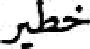 خطير